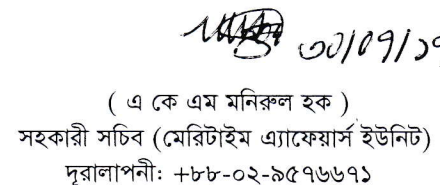 ৩০/০৭/১৭
( এ কে এম মনিরুল হক )
সহকারী সচিব (মেরিটাইম এ্যাফেয়ার্স ইউনিট)
দূরালাপনী: +৮৮-০২-৯৫৭৬৬৭১